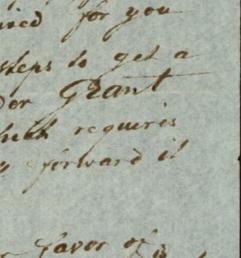 for you
steps to get a
or Grant
requires
forward it
favor of